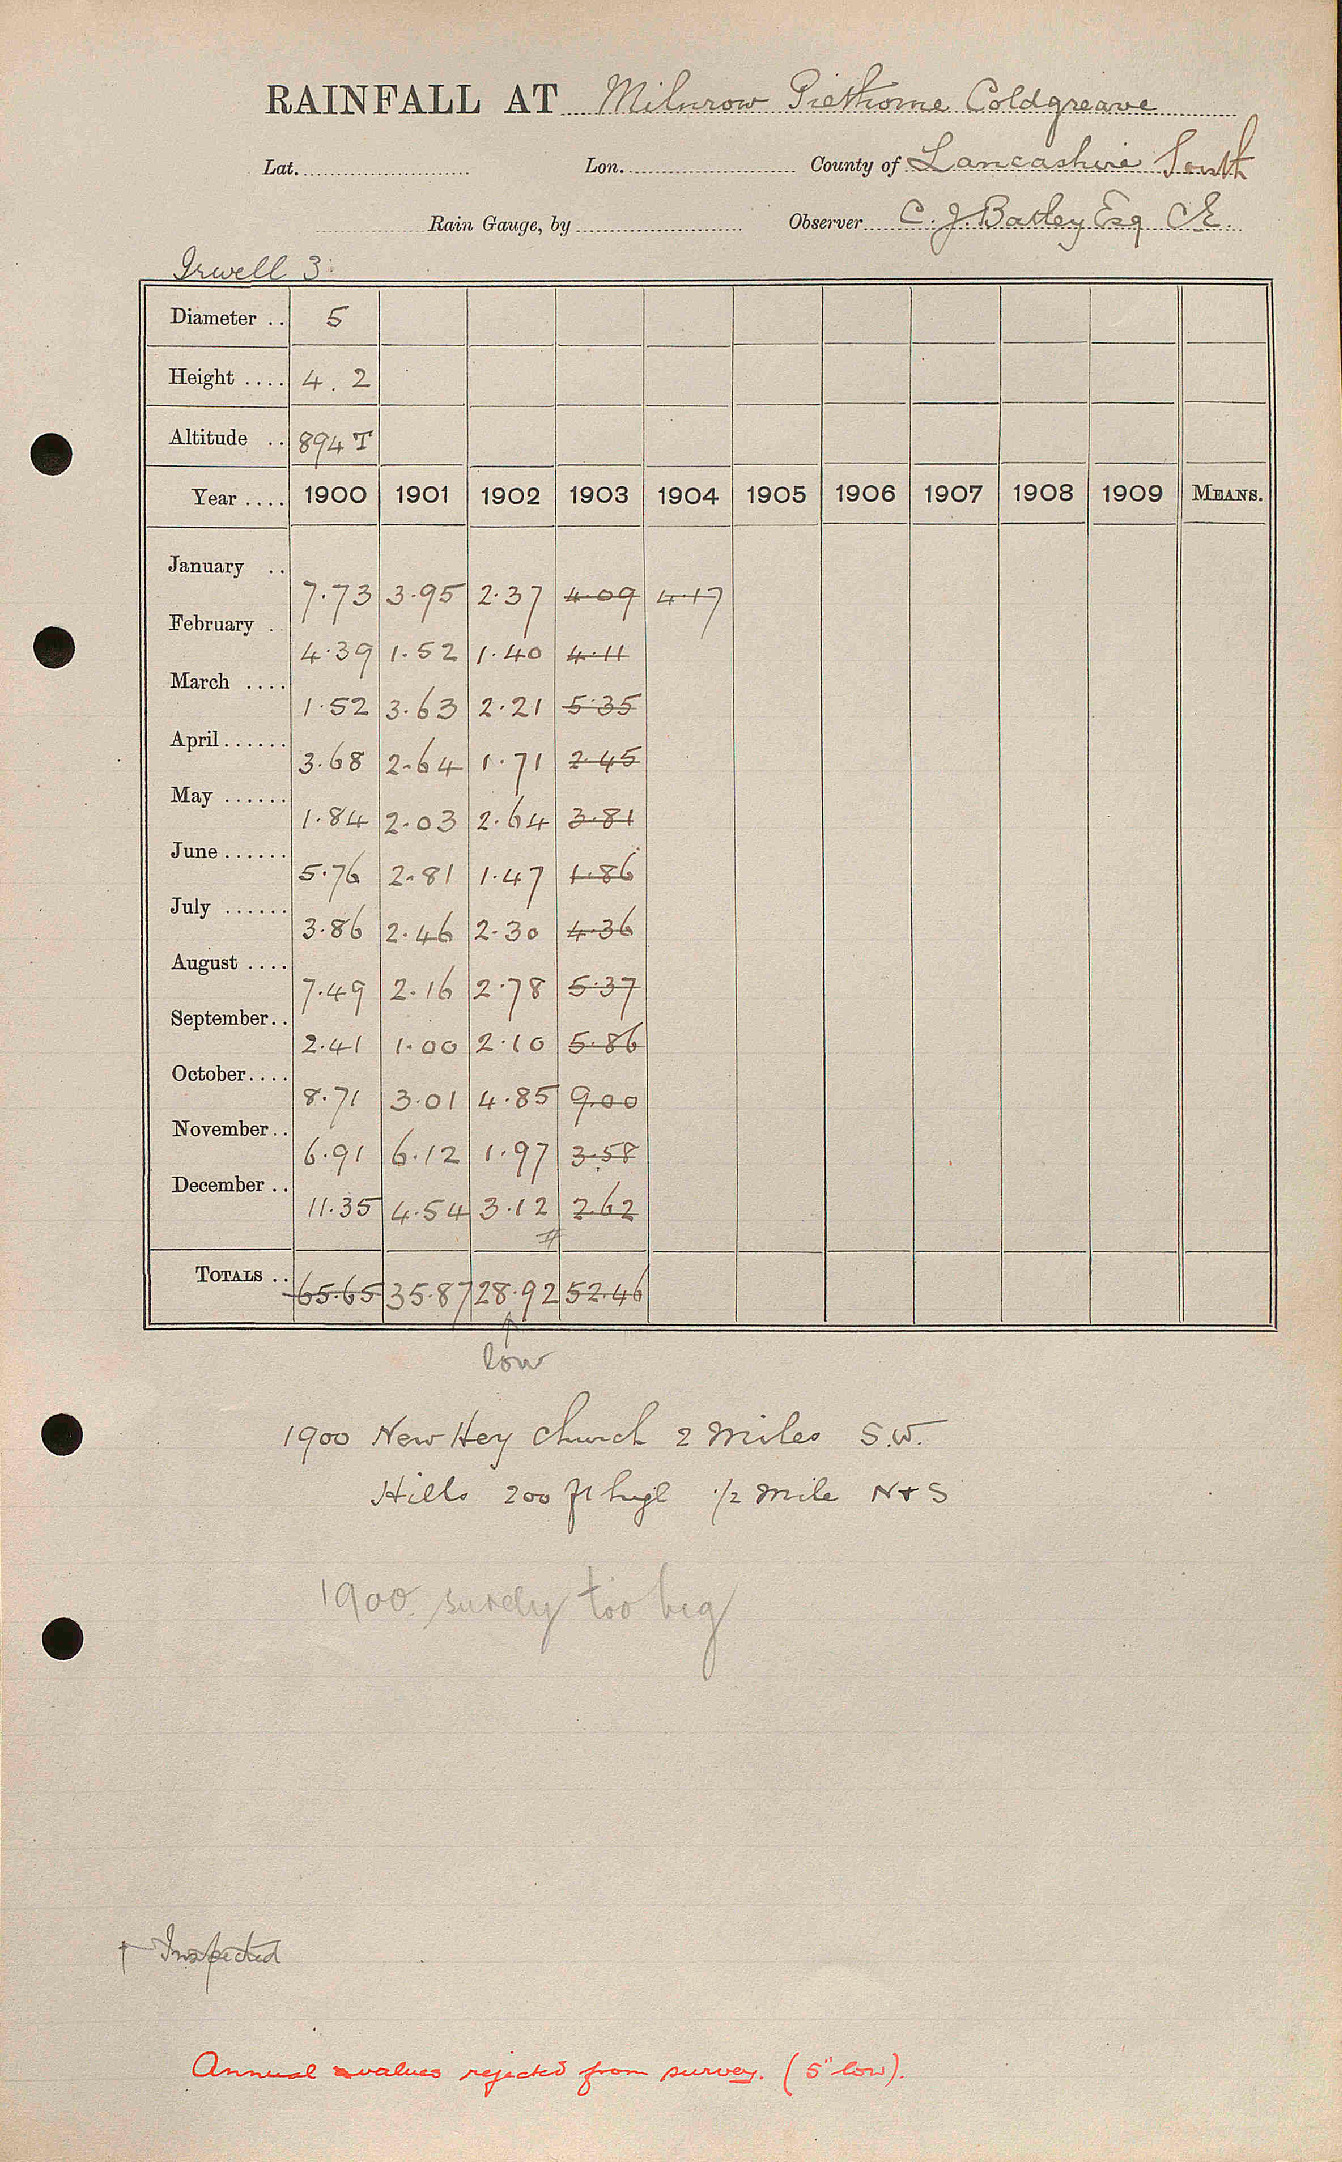 RAINFALL AT Milnrow Piethorne Coldgreave
Lat. Lon. County of Lancashire South
Rain Gauge, by Observer C. J. Batley Esq CE
Irwell 3.
Diameter .. 5
Height .... 4. 2
Altitude .. 894 T
Year .... 1900 1901 1902 1903 1904 1905 1906 1907 1908 1909 MEANS.
January .. 7.73 3.95 2.37 4.09 4.17
February . 4.39 1.52 1.40 4.11
March .... 1.52 3.63 2.21 5.35
April...... 3.68 2.64 1.71 2.45
May ...... 1.84 2.03 2.64 3.81
June...... 5.76 2.81 1.47 1.86
July ...... 3.86 2.46 2.30 4.36
August .... 7.49 2.16 2.78 5.37
September.. 2.41 1.00 2.10 5.86
October.... 8.71 3.01 4.85 9.00
November.. 6.91 6.12 1.97 3.58
December .. 11.35 4.54 3.12 2.62
#
TOTALS .. 65.65 35.87 28.92 52.46
low
1900 New Hey Church 2 miles S.W.
Hills 200 ft high 1/2 mile N + S
1900 surely too big
† Inspected
Annual values rejected from survey. (5" low).